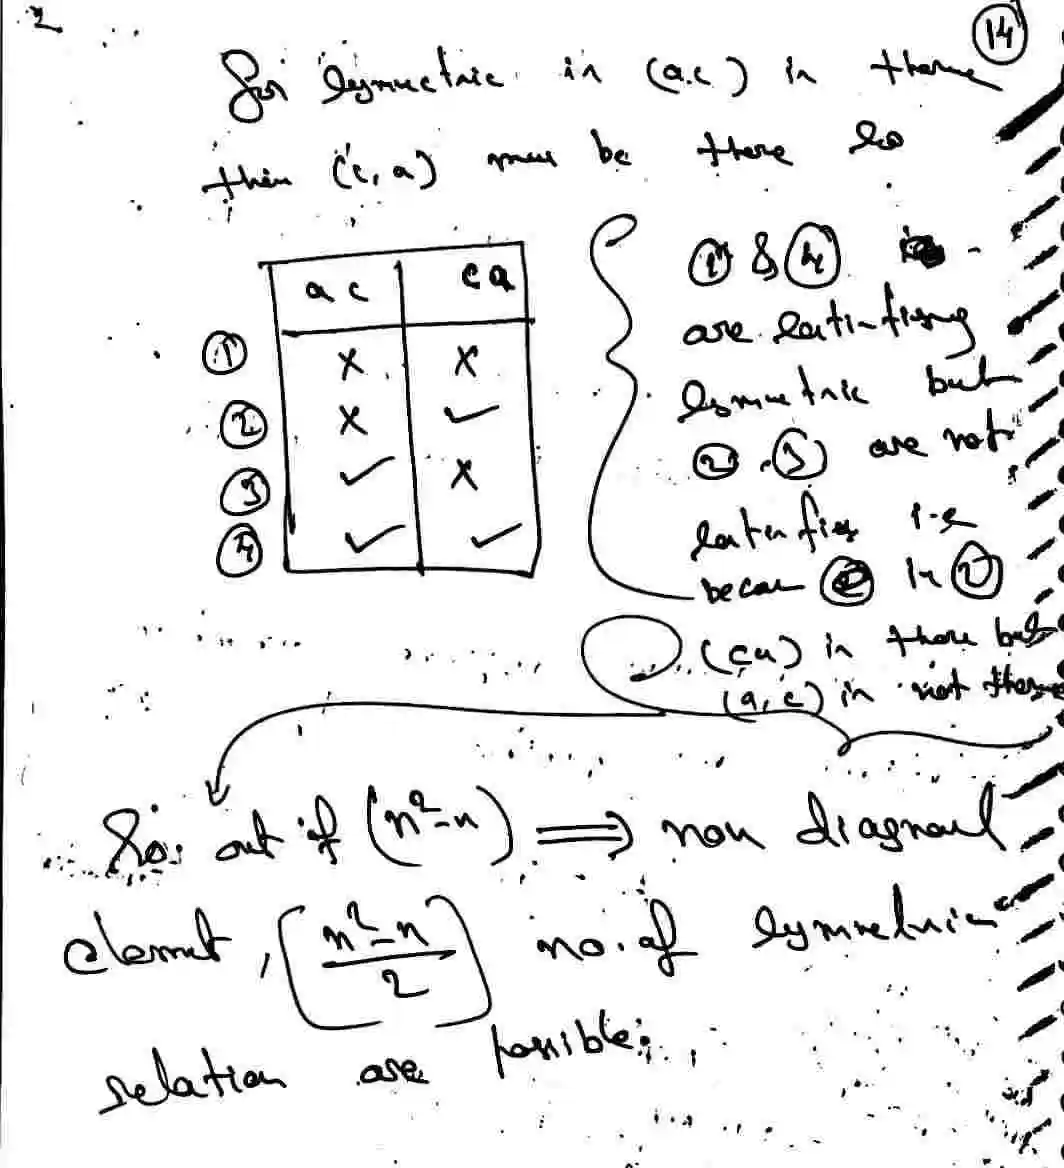 14
for symmetric in (a.c) in there
then (c, a) must be there so
a c c a
1 x x
2 x ✓
3 ✓ x
4 ✓ ✓
1 & 4
are satisfying
symmetric but
2, 3 are not
satisfies i.e
becau in 2
(ca) in there but
(a, c) in not there
So. out of (n²-n) ⟹ non diagnoal
element, (n²-n / 2) no. of symmetric
relation are possible.